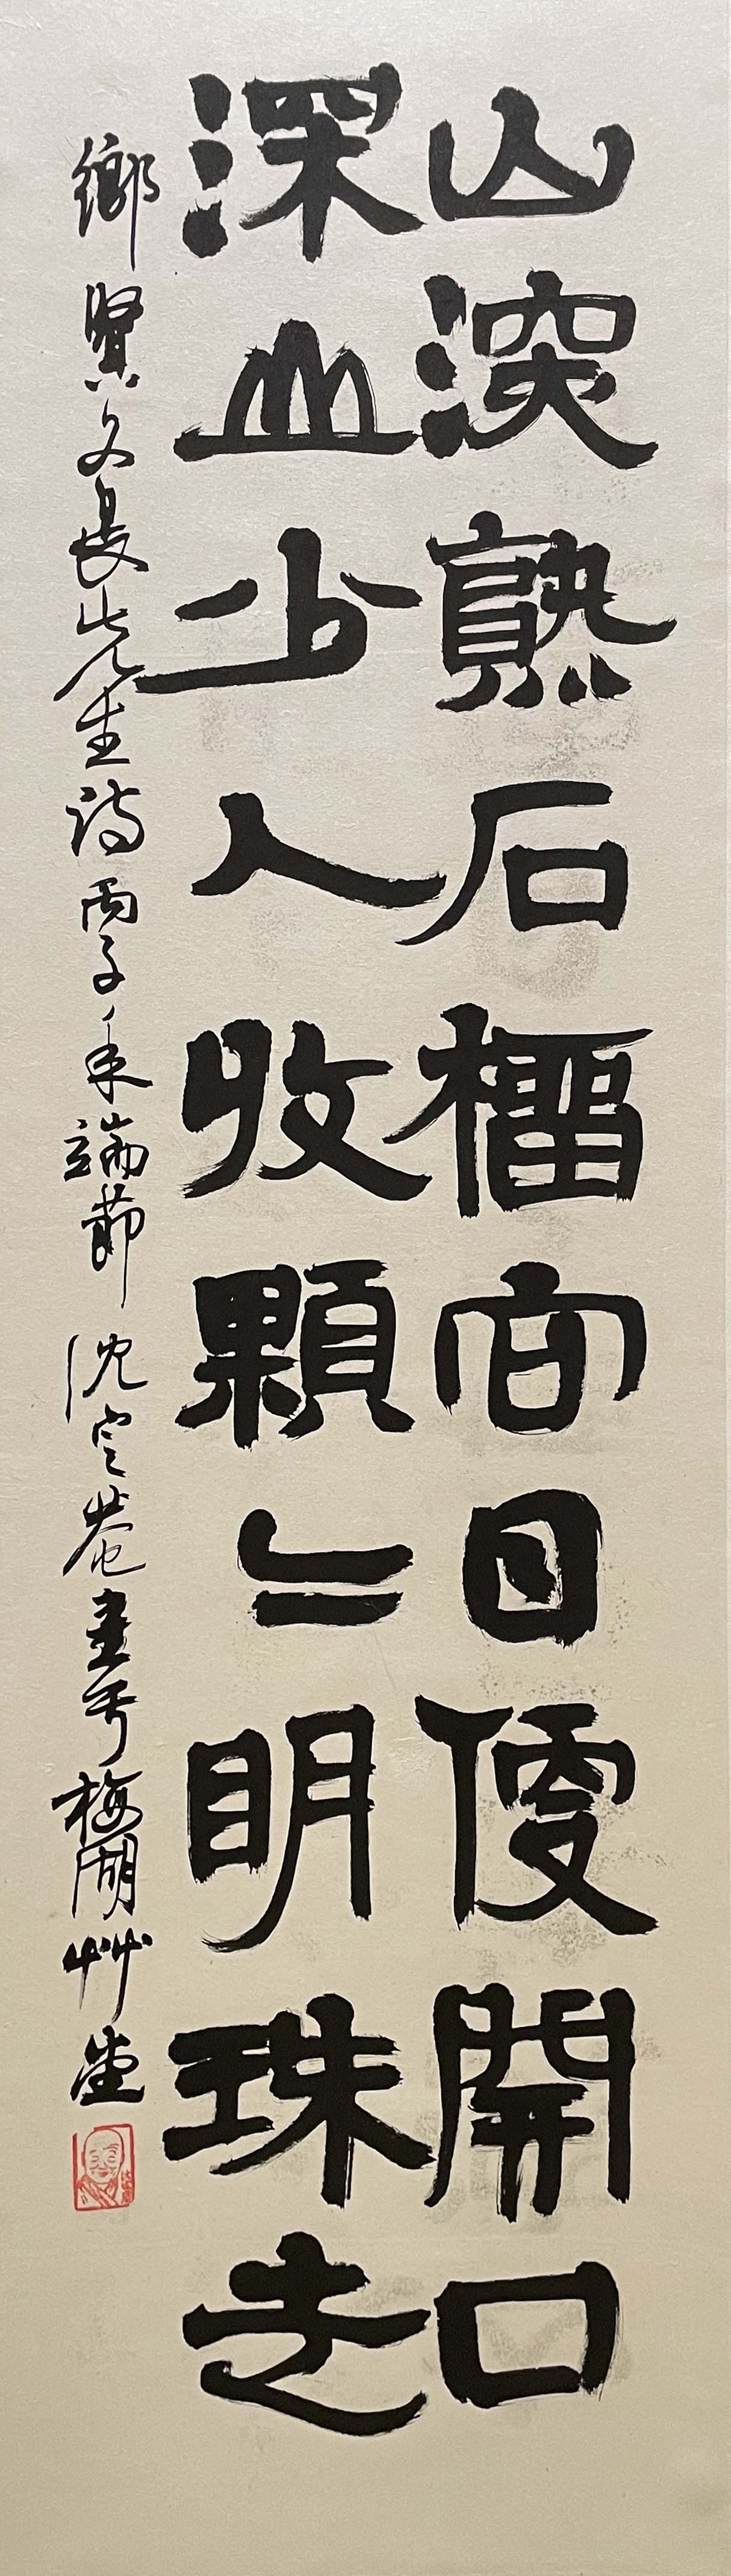 山深熟石榴向日便開口
深山少人收顆〻明珠走
鄉賢文長先生詩丙子年端節沈定庵書于梅湖艸堂